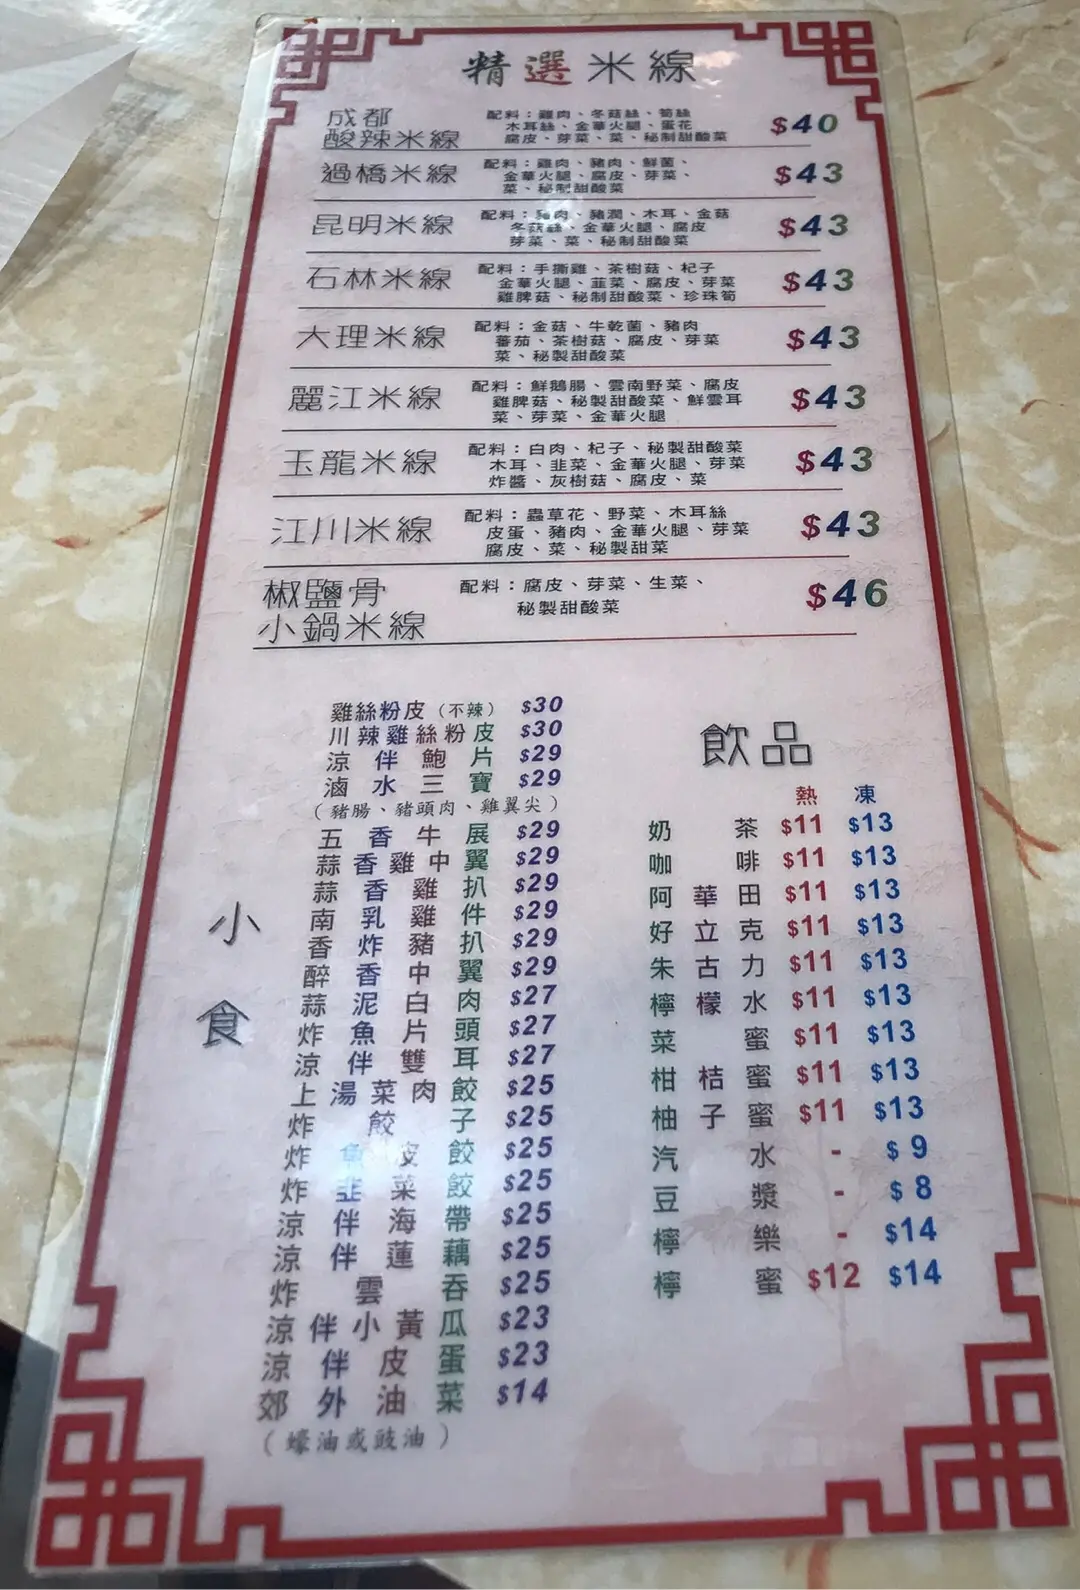 精選米線
成都
酸辣米線
配料：雞肉、冬菇絲、筍絲
木耳絲、金華火腿、蛋花
腐皮、芽菜、菜、秘制甜酸菜
$40
過橋米線
配料：雞肉、豬肉、鮮菌、
金華火腿、腐皮、芽菜、
菜、秘制甜酸菜
$43
昆明米線
配料：豬肉、豬潤、木耳、金菇
冬菇絲、金華火腿、腐皮
芽菜、菜、秘制甜酸菜
$43
石林米線
配料：手撕雞、茶樹菇、杞子
金華火腿、韮菜、腐皮、芽菜
雞脾菇、秘制甜酸菜、珍珠筍
$43
大理米線
配料：金菇、牛乾菌、豬肉
蕃茄、茶樹菇、腐皮、芽菜
菜、秘製甜酸菜
$43
麗江米線
配料：鮮鵝腸、雲南野菜、腐皮
雞脾菇、秘製甜酸菜、鮮雲耳
菜、芽菜、金華火腿
$43
玉龍米線
配料：白肉、杞子、秘製甜酸菜
木耳、韭菜、金華火腿、芽菜
炸醬、灰樹菇、腐皮、菜
$43
江川米線
配料：蟲草花、野菜、木耳絲
皮蛋、豬肉、金華火腿、芽菜
腐皮、菜、秘製甜菜
$43
椒鹽骨
小鍋米線
配料：腐皮、芽菜、生菜、
秘製甜酸菜
$46
小食
雞絲粉皮（不辣） $30
川辣雞絲粉皮 $30
涼伴鮑片 $29
滷水三寶 $29
（豬腸、豬頭肉、雞翼尖）
五香牛展 $29
蒜香雞中翼 $29
蒜香雞扒 $29
南乳雞件 $29
香炸豬扒 $29
醉香中翼 $29
蒜泥白肉 $27
炸魚片頭 $27
涼伴雙耳 $27
上湯菜肉餃 $25
炸餃子 $25
炸魚皮餃 $25
炸韭菜餃 $25
涼伴海帶 $25
涼伴蓮藕 $25
炸雲吞 $25
涼伴小黃瓜 $23
涼伴皮蛋 $23
郊外油菜 $14
（蠔油或豉油）
飲品
熱 凍
奶茶 $11 $13
咖啡 $11 $13
阿華田 $11 $13
好立克 $11 $13
朱古力 $11 $13
檸檬水 $11 $13
菜蜜 $11 $13
柑桔蜜 $11 $13
柚子蜜 $11 $13
汽水 - $9
豆漿 - $8
檸樂 - $14
檸蜜 $12 $14